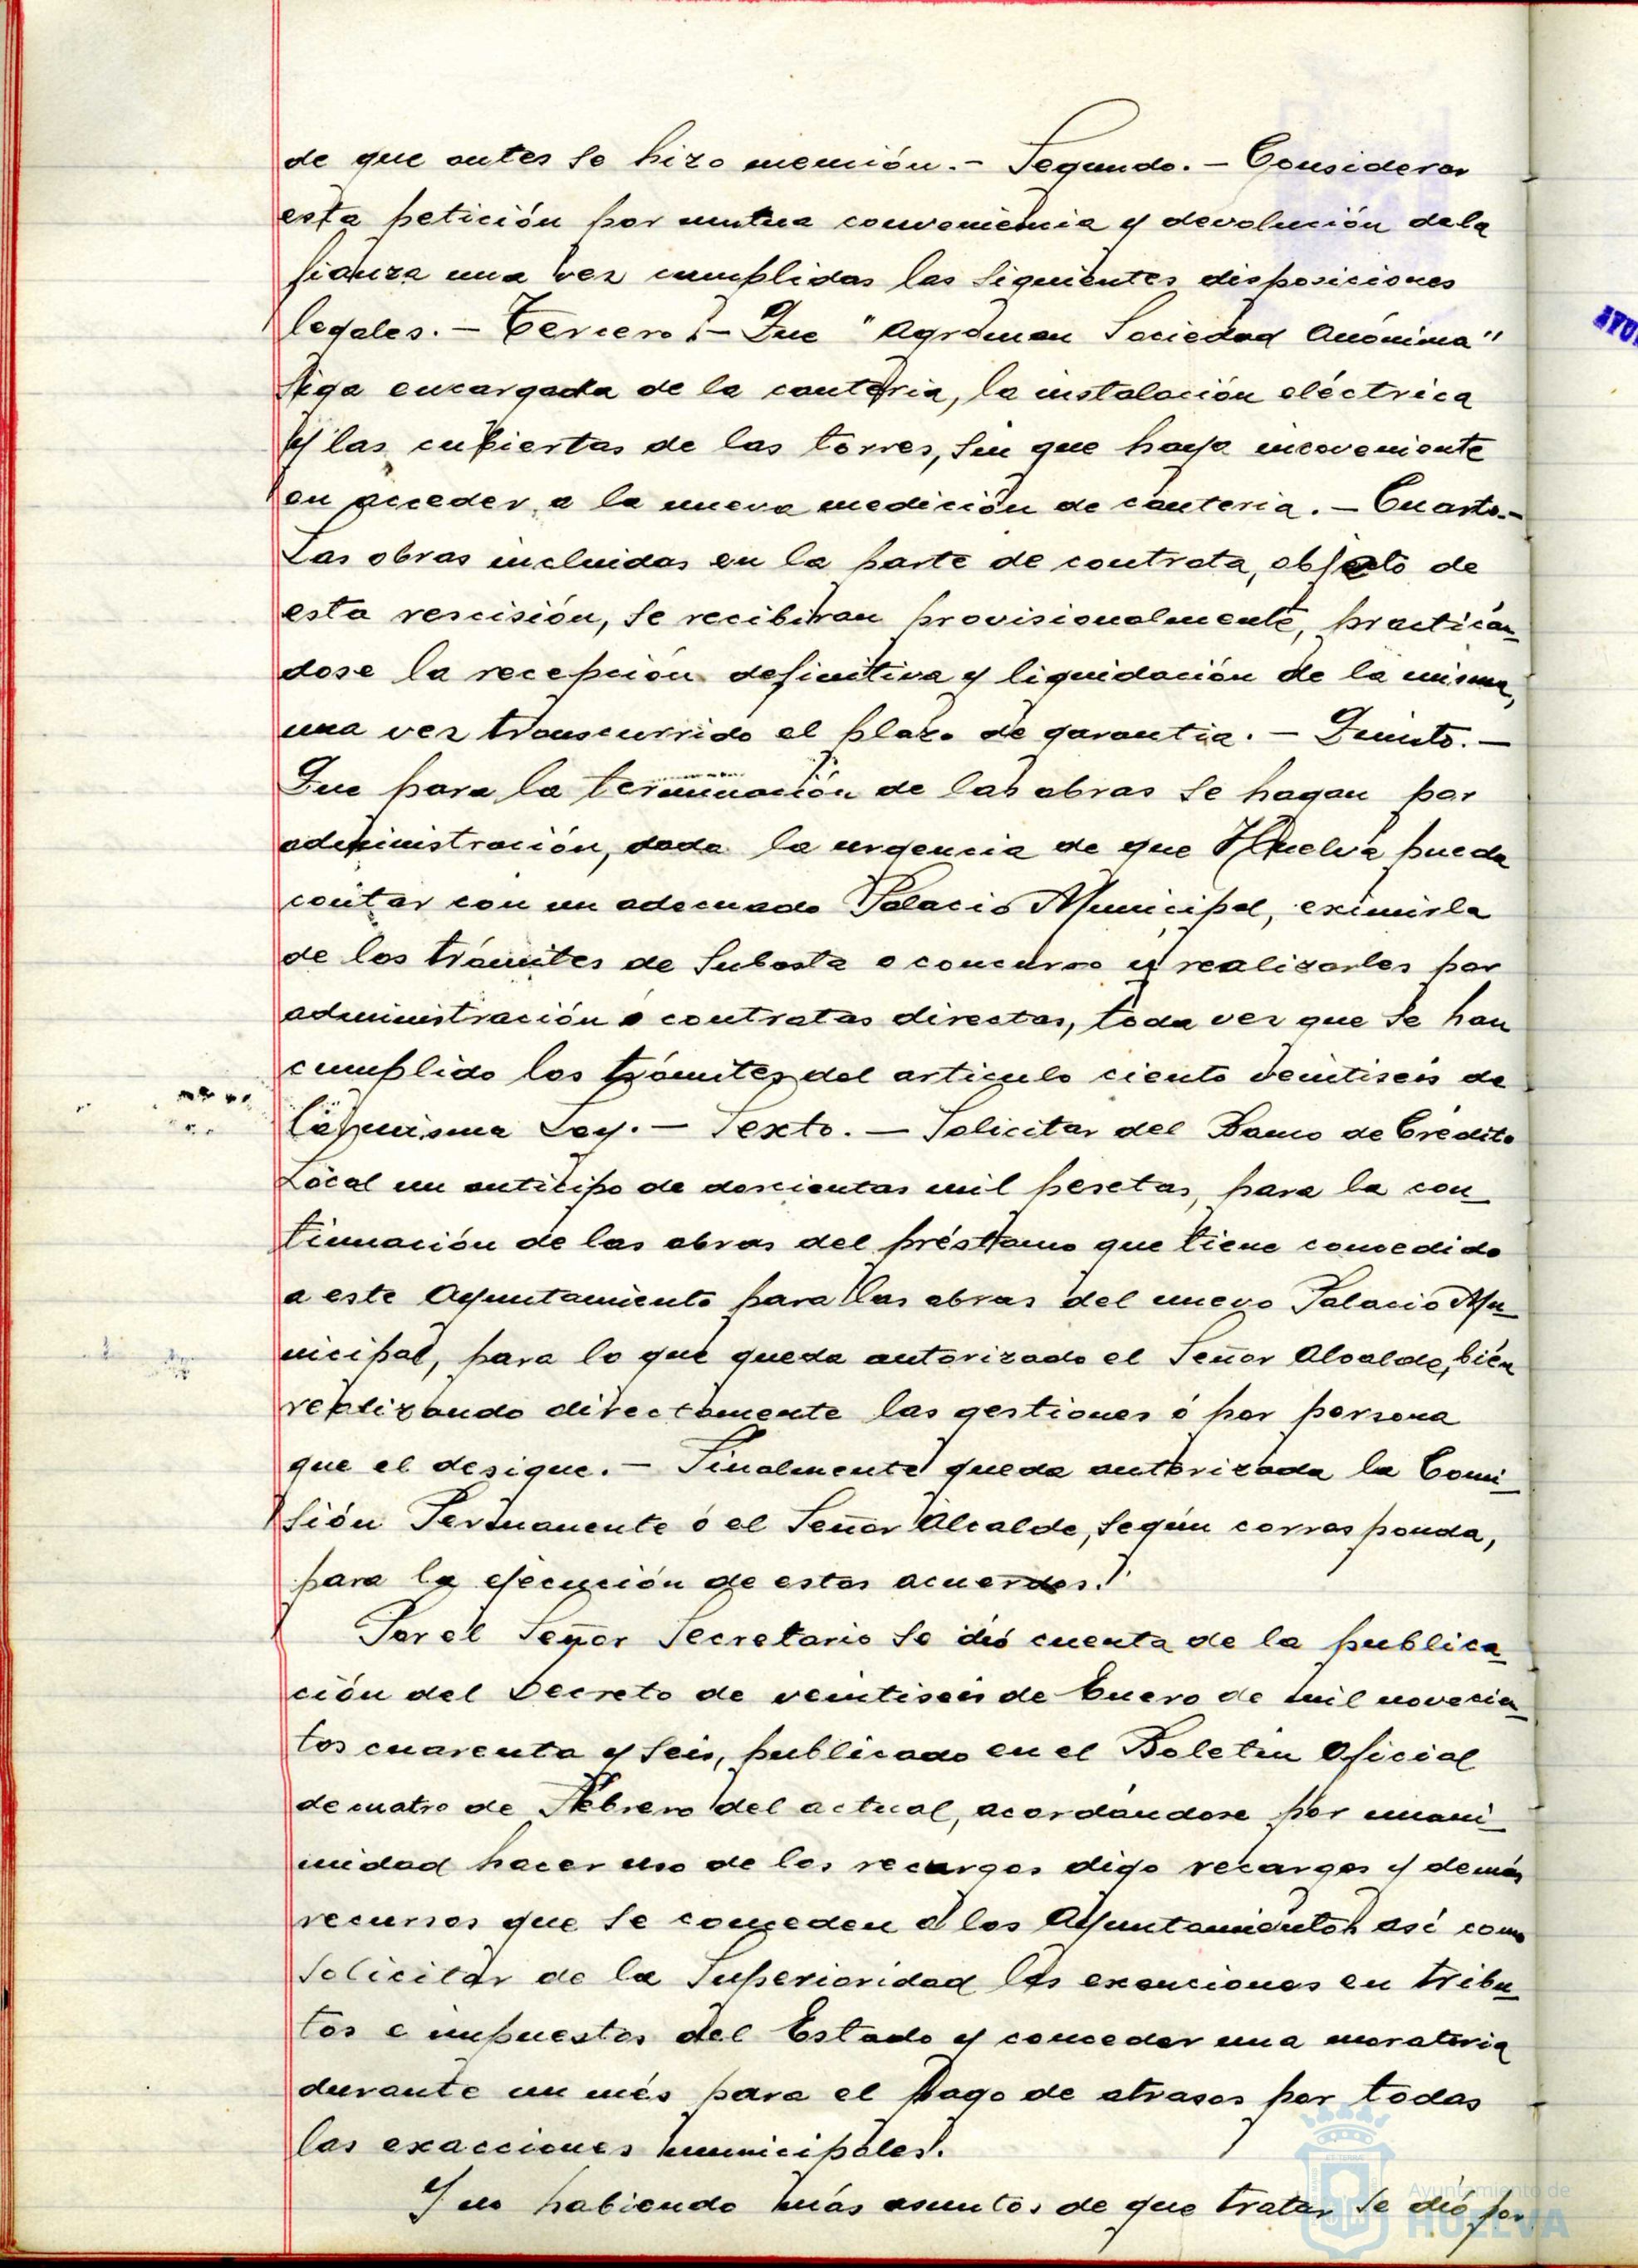 de que antes se hizo mención.- Segundo.- Considerar
esta petición por mutua conveniencia y devolución de la
fianza una vez cumplidas las siguientes disposiciones
legales.- Tercero.- Que "Agroman Sociedad Anónima"
siga encargada de la cantería, la instalación eléctrica
y las cubiertas de las torres, sin que haya incoveniente
en acceder a la nueva medición de cantería.- Cuarto.-
Las obras incluidas en la parte de contrata, objeto de
esta rescisión, se recibiran provisionalmente, practicán-
dose la recepción definitiva y liquidación de la misma,
una vez transcurrido el plazo de garantia.- Quinto.-
Que para la terminación de las obras se hagan por
administración, dada la urgencia de que Huelva pueda
contar con un adecuado Palacio Municipal, eximirla
de los trámites de subasta o concurso y realizarles por
administración o contratas directas, toda vez que se han
cumplido los trámites del articulo ciento veintiseis de
la misma Ley.- Sexto.- Solicitar del Banco de Crédito
Local un anticipo de doscientas mil pesetas, para la con-
tinuación de las obras del préstamo que tiene concedido
a este Ayuntamiento para las obras del nuevo Palacio Mu-
nicipal, para lo que queda autorizado el Señor Alcalde, bien
realizando directamente las gestiones ó por persona
que el desigue.- Finalmente queda autorizada la Comi-
sión Permanente ó el Señor Alcalde, según corresponda,
para la ejecución de estos acuerdos.
Por el Señor Secretario se dió cuenta de la publica-
ción del Decreto de veintiseis de Enero de mil novecien-
tos cuarenta y seis, publicado en el Boletin Oficial
de cuatro de Febrero del actual, acordándose por unani-
midad hacer uso de los recurgos digo recargos y demás
recursos que se conceden a los Ayuntamientos así como
solicitar de la Superioridad las exenciones en tribu-
tos e impuestos del Estado y conceder una moratoria
durante un més para el pago de atrasos por todas
las exacciones municipales.
Y no habiendo más asuntos de que tratar se dió por
Ayuntamiento de
HUELVA